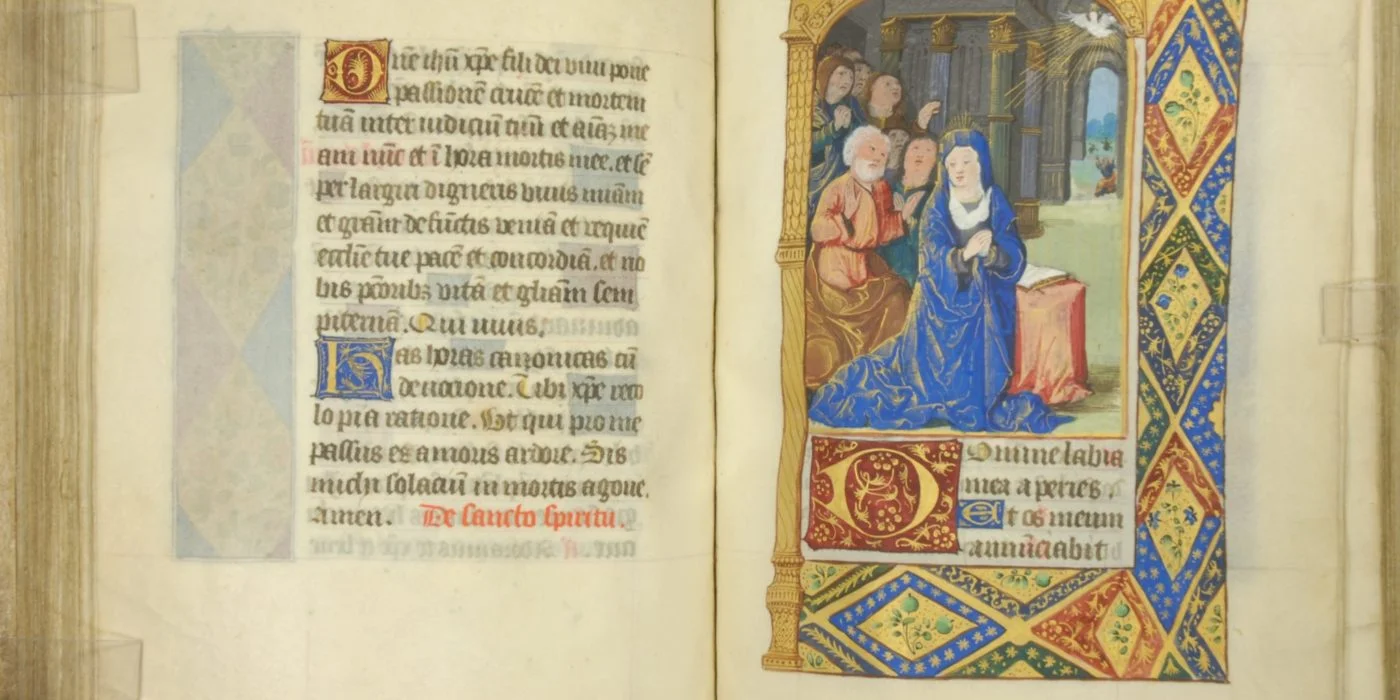 Dn̄e ihū xp̄e fili dei viui pone
passionē crucē et mortem
tuā inter iudiciū tuū et aīaʒ me
am nūc et ī hora mortis mee. et sē
per largiri digneris viuis miām
et grām defūctis veniā et requiē
ecclīe tue pacē et concordiā. et no
bis pc̄oribʒ vitā et gliām sem
piternā. Qui viuis.
Has horas canonicas cū
deuocione. Tibi xp̄e reco
lo pia ratione. Ut qui pro me
passus es amoris ardore. Sis
michi solaciū in mortis agone.
Amen. De sancto spiritu.
Domine labia
mea aperies.
Et os meum
annūciabit